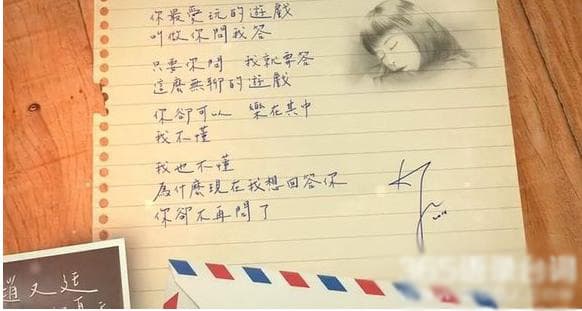 你最愛玩的遊戲
叫做你問我答
只要你問 我就要答
這麼無聊的遊戲
你卻可以 樂在其中
我不懂
我也不懂
為什麼現在我想回答你
你卻不再問了
趙又廷